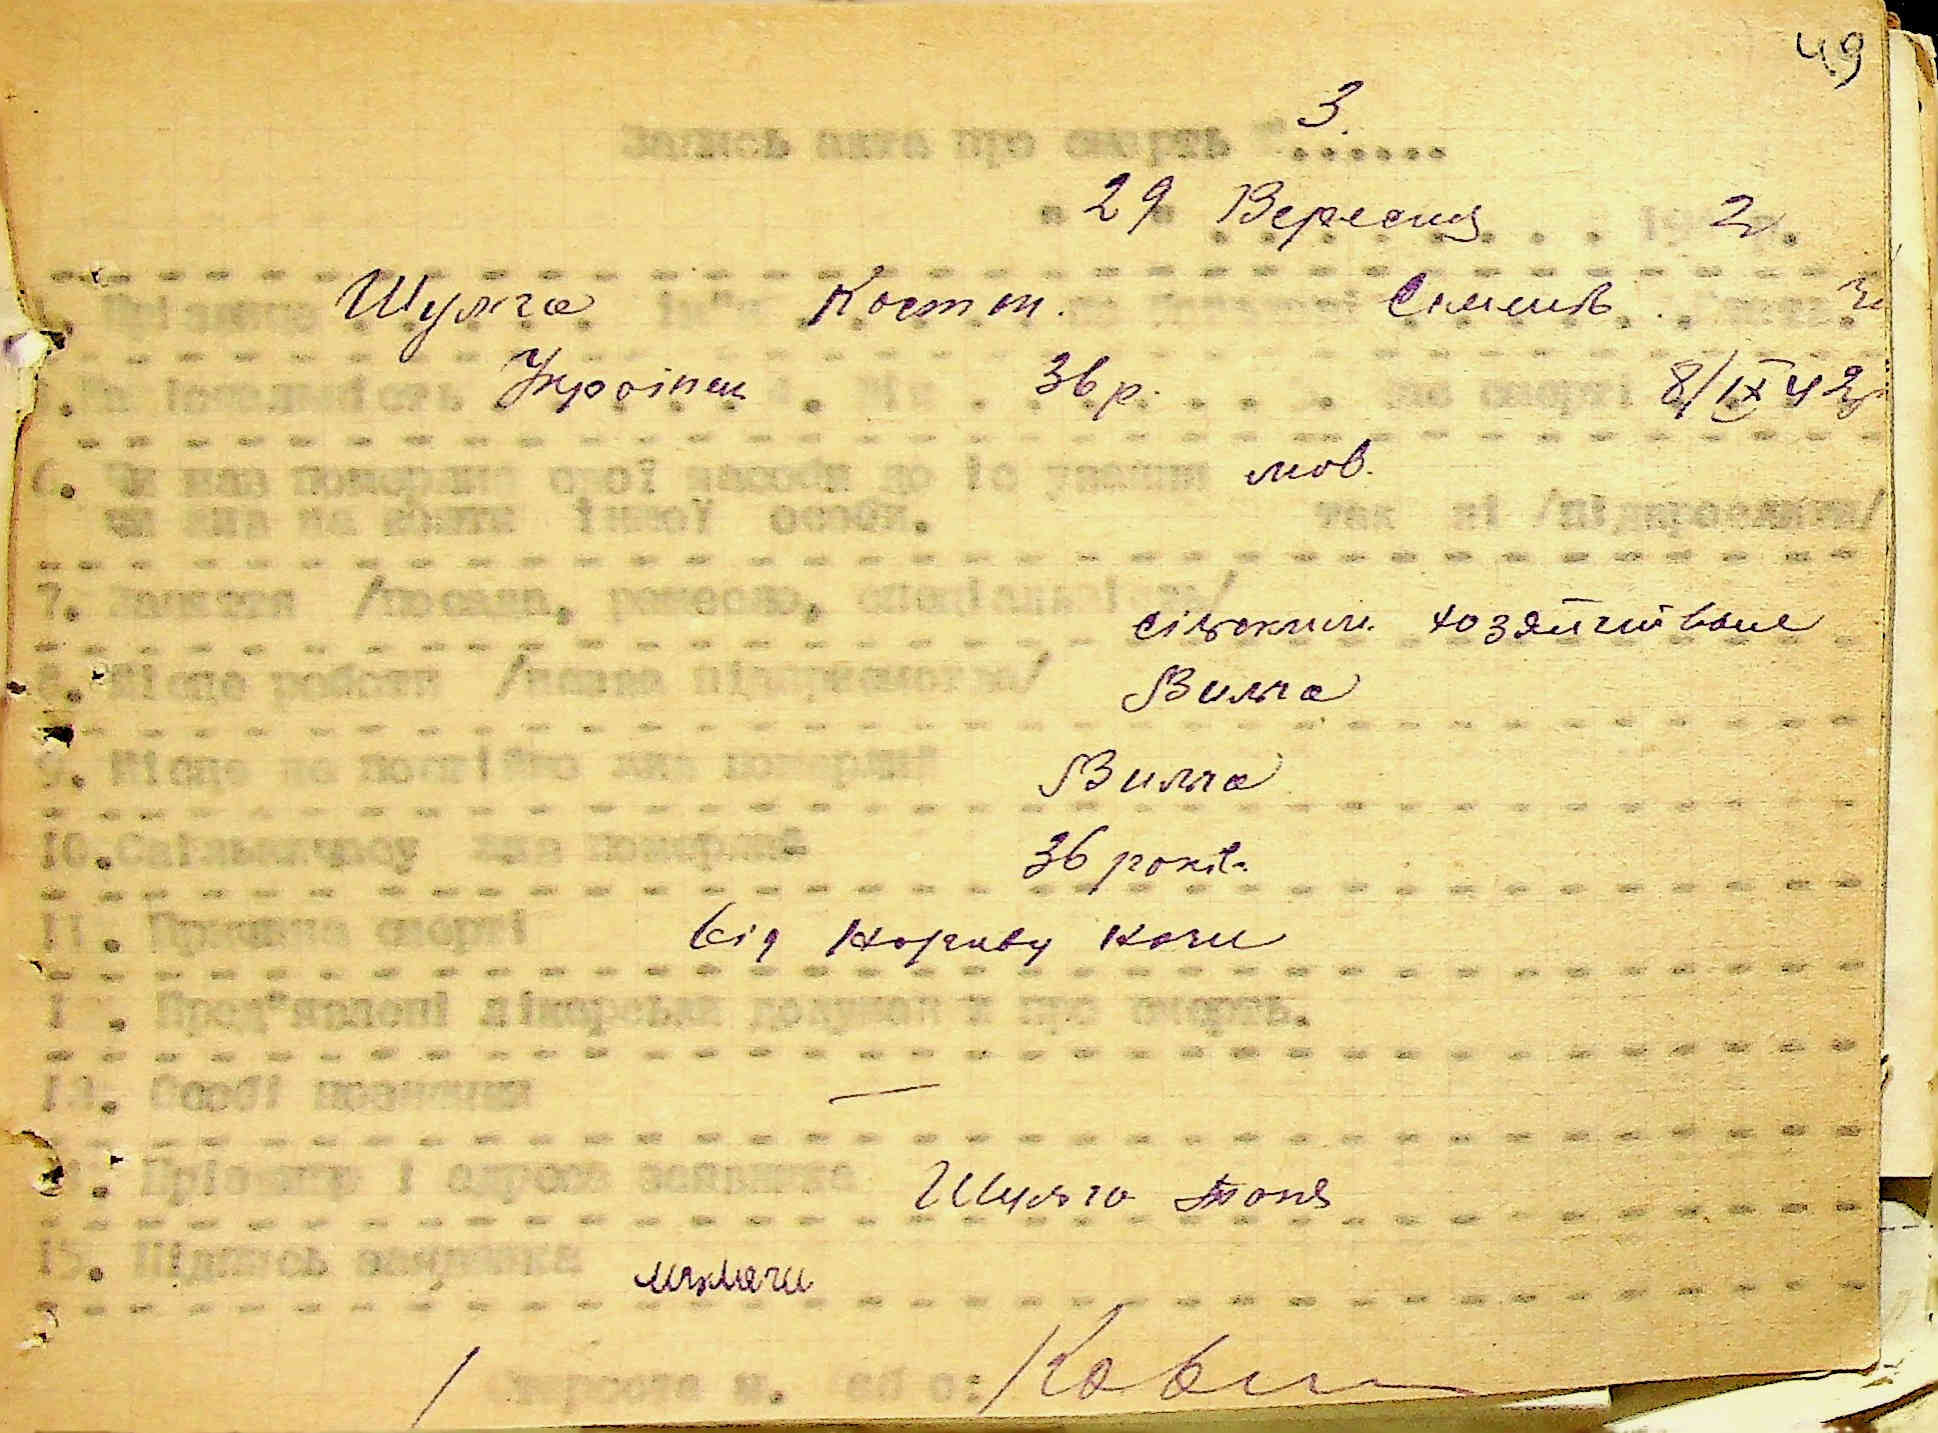 49
Запись акта про смерть № 3.
" 29 " Вересня 1942 р.
1. Прізвище Шульга ім'я Кост по батькові Семенів
Національність Українец Вік 36 р. час смерті 8/IX 42
6. Чи мав померлий свої засоби до існування
чи жив на кошти іншої особи. так ні /підкреслити/
7. Заняття /посада, ремесло, спеціальність/ сільским хозяйством
8. Місце роботи /назва підприємства/ Вильча
9. Місце де постійно жив померлий Вильча
10. Скільки часу жив померлий 36 років
11. Причина смерті від нориву ноги
12. Пред"явлені лікарськи документи про смерть.
13. Особі познаки —
14. Прізвище і адреса заявника Шульга Тоня
15. Підпись заявника
староста м. або с: